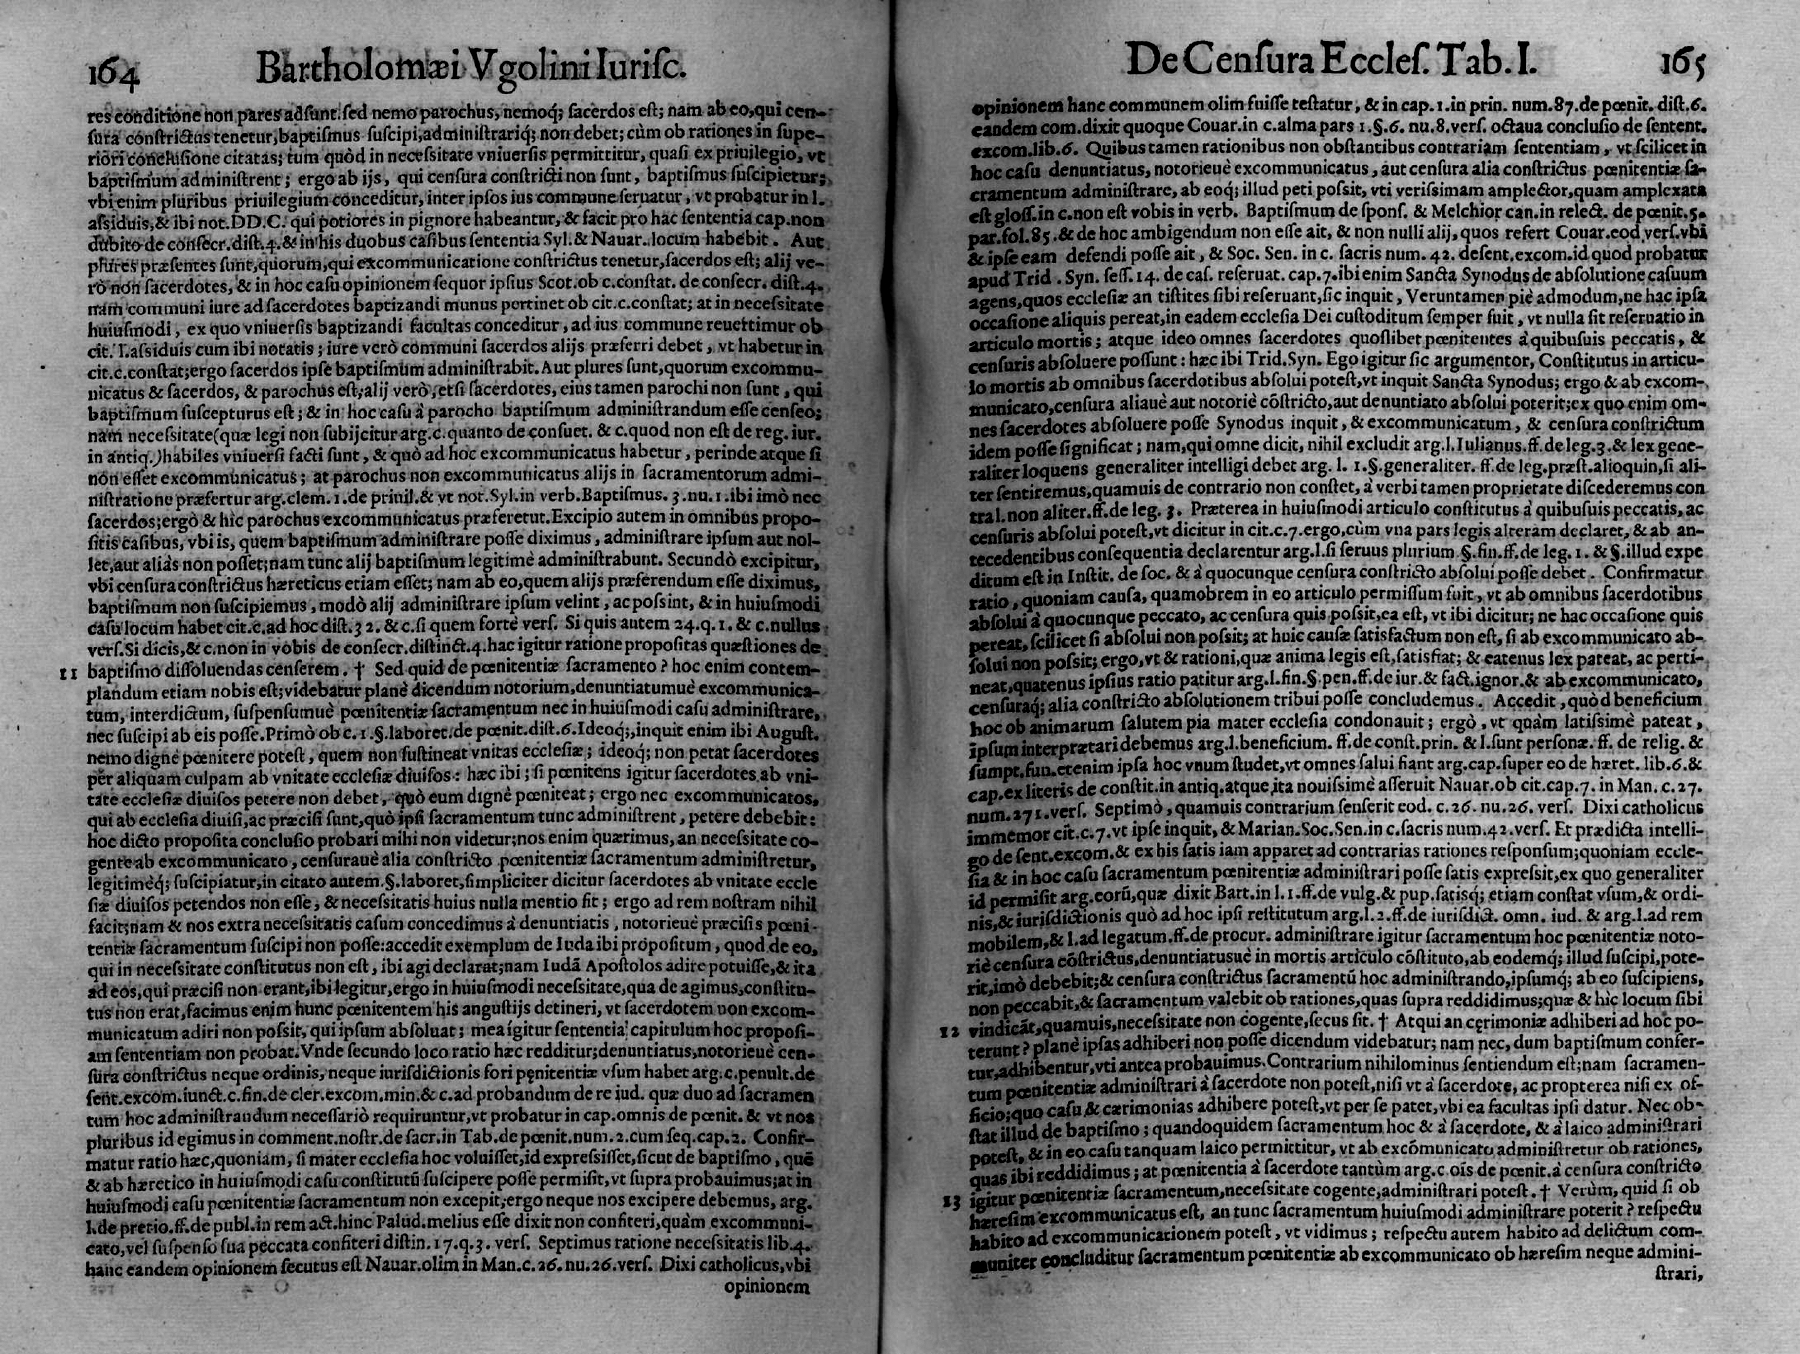 164 Bartholomæi Vgolini Iurisc.
res conditione non pares adsunt: sed nemo parochus, nemoq; sacerdos est; nam ab eo, qui cen-
sura constrictus tenetur, baptismus suscipi, administrariq; non debet; cùm ob rationes in supe-
riori conclusione citatas; tum quòd in necessitate vniuersis permittitur, quasi ex priuilegio, vt
baptismum administrent; ergo ab ijs, qui censura constricti non sunt, baptismus suscipietur;
vbi enim pluribus priuilegium conceditur, inter ipsos ius commune seruatur, vt probatur in l.
assiduis, & ibi not. DD. C. qui potiores in pignore habeantur, & facit pro hac sententia cap. non
dubito de consecr. dist. 4. & in his duobus casibus sententia Syl. & Nauar. locum habebit. Aut
plures præsentes sunt, quorum, qui excommunicatione constrictus tenetur, sacerdos est; alij ve-
rò non sacerdotes, & in hoc casu opinionem sequor ipsius Scot. ob c. constat. de consecr. dist. 4.
nam communi iure ad sacerdotes baptizandi munus pertinet ob cit. c. constat; at in necessitate
huiusmodi, ex quo vniuersis baptizandi facultas conceditur, ad ius commune reuettimur ob
cit. l. assiduis cum ibi notatis; iure verò communi sacerdos alijs præferri debet, vt habetur in
cit. c. constat; ergo sacerdos ipse baptismum administrabit. Aut plures sunt, quorum excommu-
nicatus & sacerdos, & parochus est; alij verò, etsi sacerdotes, eius tamen parochi non sunt, qui
baptismum suscepturus est; & in hoc casu à parocho baptismum administrandum esse censeo;
nam necessitate (quæ legi non subijcitur arg. c. quanto de consuet. & c. quod non est de reg. iur.
in antiq.) habiles vniuersi facti sunt, & quò ad hoc excommunicatus habetur, perinde atque si
non esset excommunicatus; at parochus non excommunicatus alijs in sacramentorum admi-
nistratione præfertur arg. clem. 1. de priuil. & vt not. Syl. in verb. Baptismus. 3. nu. 1. ibi imò nec
sacerdos; ergò & hic parochus excommunicatus præferetur. Excipio autem in omnibus propo-
sitis casibus, vbi is, quem baptismum administrare posse diximus, administrare ipsum aut nol-
let, aut aliàs non posset; nam tunc alij baptismum legitimè administrabunt. Secundò excipitur,
vbi censura constrictus hæreticus etiam esset; nam ab eo, quem alijs præferendum esse diximus,
baptismum non suscipiemus, modò alij administrare ipsum velint, ac possint, & in huiusmodi
casu locum habet cit. c. ad hoc dist. 32. & c. si quem fortè vers. Si quis autem 24. q. 1. & c. nullus
vers. Si dicis, & c. non in vobis de consecr. distinct. 4. hac igitur ratione propositas quæstiones de
11 baptismo dissoluendas censerem. † Sed quid de pœnitentiæ sacramento? hoc enim contem-
plandum etiam nobis est; videbatur planè dicendum notorium, denuntiatumuè excommunica-
tum, interdictum, suspensumuè pœnitentiæ sacramentum nec in huiusmodi casu administrare,
nec suscipi ab eis posse. Primò ob c. 1. §. laboret. de pœnit. dist. 6. Ideoq;, inquit enim ibi August.
nemo dignè pœnitere potest, quem non sustineat vnitas ecclesiæ; ideoq; non petat sacerdotes
per aliquam culpam ab vnitate ecclesiæ diuisos: hæc ibi; si pœnitens igitur sacerdotes ab vni-
tate ecclesiæ diuisos petere non debet, quò eum dignè pœniteat; ergo nec excommunicatos,
qui ab ecclesia diuisi, ac præcisi sunt, quò ipsi sacramentum tunc administrent, petere debebit:
hoc dicto proposita conclusio probari mihi non videtur; nos enim quærimus, an necessitate co-
gente ab excommunicato, censurauè alia constricto pœnitentiæ sacramentum administretur,
legitimèq; suscipiatur, in citato autem. §. laboret, simpliciter dicitur sacerdotes ab vnitate eccle
siæ diuisos petendos non esse, & necessitatis huius nulla mentio fit; ergo ad rem nostram nihil
facit; nam & nos extra necessitatis casum concedimus à denuntiatis, notorieuè præcisis pœni-
tentiæ sacramentum suscipi non posse: accedit exemplum de Iuda ibi propositum, quod de eo,
qui in necessitate constitutus non est, ibi agi declarat; nam Iudã Apostolos adire potuisse, & ita
ad eos, qui præcisi non erant, ibi legitur, ergo in huiusmodi necessitate, qua de agimus, constitu-
tus non erat, facimus enim hunc pœnitentem his angustijs detineri, vt sacerdotem non excom-
municatum adiri non possit, qui ipsum absoluat; mea igitur sententia capitulum hoc proposi-
am sententiam non probat. Vnde secundo loco ratio hæc redditur; denuntiatus, notorieuè cen-
sura constrictus neque ordinis, neque iurisdictionis fori pęnitentiæ vsum habet arg. c. penult. de
sent. excom. iunct. c. fin. de cler. excom. min. & c. ad probandum de re iud. quæ duo ad sacramen
tum hoc administrandum necessariò requiruntur, vt probatur in cap. omnis de pœnit. & vt nos
pluribus id egimus in comment. nostr. de sacr. in Tab. de pœnit. num. 2. cum seq. cap. 2. Confir-
matur ratio hæc, quoniam, si mater ecclesia hoc voluisset, id expressisset, sicut de baptismo, quẽ
& ab hæretico in huiusmodi casu constitutũ suscipere posse permisit, vt supra probauimus; at in
huiusmodi casu pœnitentiæ sacramentum non excepit; ergo neque nos excipere debemus, arg.
l. de pretio. ff. de publ. in rem act. hinc Palud. melius esse dixit non confiteri, quàm excommuni-
cato, vel suspenso sua peccata confiteri distin. 17. q. 3. vers. Septimus ratione necessitatis lib. 4.
hanc eandem opinionem secutus est Nauar. olim in Man. c. 26. nu. 26. vers. Dixi catholicus, vbi
opinionem
De Censura Eccles. Tab. I. 165
opinionem hanc communem olim fuisse testatur, & in cap. 1. in prin. num. 87. de pœnit. dist. 6.
eandem com. dixit quoque Couar. in c. alma pars 1. §. 6. nu. 8. vers. octaua conclusio de sentent.
excom. lib. 6. Quibus tamen rationibus non obstantibus contrariam sententiam, vt scilicet in
hoc casu denuntiatus, notorieuè excommunicatus, aut censura alia constrictus pœnitentiæ sa-
cramentum administrare, ab eoq; illud peti possit, vti verissimam amplector, quam amplexata
est gloss. in c. non est vobis in verb. Baptismum de spons. & Melchior can. in relect. de pœnit. 5.
par. fol. 85. & de hoc ambigendum non esse ait, & non nulli alij, quos refert Couar. eod. vers. vbi
& ipse eam defendi posse ait, & Soc. Sen. in c. sacris num. 42. de sent. excom. id quod probatur
apud Trid. Syn. sess. 14. de cas. reseruat. cap. 7. ibi enim Sancta Synodus de absolutione casuum
agens, quos ecclesiæ an tistites sibi reseruant, sic inquit, Veruntamen piè admodum, ne hac ipsa
occasione aliquis pereat, in eadem ecclesia Dei custoditum semper fuit, vt nulla sit reseruatio in
articulo mortis; atque ideo omnes sacerdotes quoslibet pœnitentes à quibusuis peccatis, &
censuris absoluere possunt: hæc ibi Trid. Syn. Ego igitur sic argumentor, Constitutus in articu-
lo mortis ab omnibus sacerdotibus absolui potest, vt inquit Sancta Synodus; ergo & ab excom-
municato, censura aliauè aut notoriè cõstricto, aut denuntiato absolui poterit; ex quo enim om-
nes sacerdotes absoluere posse Synodus inquit, & excommunicatum, & censura constrictum
idem posse significat; nam, qui omne dicit, nihil excludit arg. l. Iulianus. ff. de leg. 3. & lex gene-
raliter loquens generaliter intelligi debet arg. l. 1. §. generaliter. ff. de leg. præst. alioquin, si ali-
ter sentiremus, quamuis de contrario non constet, à verbi tamen proprietate discederemus con
tra l. non aliter. ff. de leg. 3. Præterea in huiusmodi articulo constitutus à quibusuis peccatis, ac
censuris absolui potest, vt dicitur in cit. c. 7. ergo, cùm vna pars legis alteram declaret, & ab an-
tecedentibus consequentia declarentur arg. l. si seruus plurium §. fin. ff. de leg. 1. & §. illud expe
ditum est in Instit. de soc. & à quocunque censura constricto absolui posse debet. Confirmatur
ratio, quoniam causa, quamobrem in eo articulo permissum fuit, vt ab omnibus sacerdotibus
absolui à quocunque peccato, ac censura quis possit, ea est, vt ibi dicitur; ne hac occasione quis
pereat, scilicet si absolui non possit; at huic causæ satisfactum non est, si ab excommunicato ab-
solui non possit; ergo, vt & rationi, quæ anima legis est, satisfiat; & eatenus lex pateat, ac perti-
neat, quatenus ipsius ratio patitur arg. l. fin. §. pen. ff. de iur. & fact. ignor. & ab excommunicato,
censuraq; alia constricto absolutionem tribui posse concludemus. Accedit, quòd beneficium
hoc ob animarum salutem pia mater ecclesia condonauit; ergò, vt quàm latissimè pateat,
ipsum interprætari debemus arg. l. beneficium. ff. de const. prin. & l. sunt personæ. ff. de relig. &
sumpt. fun. etenim ipsa hoc vnum studet, vt omnes salui fiant arg. cap. super eo de hæret. lib. 6. &
cap. ex literis de constit. in antiq. atque ita nouissimè asseruit Nauar. ob cit. cap. 7. in Man. c. 27.
num. 271. vers. Septimò, quamuis contrarium senserit eod. c. 26. nu. 26. vers. Dixi catholicus
immemor cit. c. 7. vt ipse inquit, & Marian. Soc. Sen. in c. sacris num. 42. vers. Et prædicta intelli-
go de sent. excom. & ex his satis iam apparet ad contrarias rationes responsum; quoniam eccle-
sia & in hoc casu sacramentum pœnitentiæ administrari posse satis expressit, ex quo generaliter
id permisit arg. eorũ, quæ dixit Bart. in l. 1. ff. de vulg. & pup. satisq; etiam constat vsum, & ordi-
nis, & iurisdictionis quò ad hoc ipsi restitutum arg. l. 2. ff. de iurisdict. omn. iud. & arg. l. ad rem
mobilem, & l. ad legatum. ff. de procur. administrare igitur sacramentum hoc pœnitentiæ noto-
riè censura cõstrictus, denuntiatusuè in mortis articulo cõstituto, ab eodemq; illud suscipi, pote-
rit, imò debebit; & censura constrictus sacramentũ hoc administrando, ipsumq; ab eo suscipiens,
non peccabit, & sacramentum valebit ob rationes, quas supra reddidimus; quæ & hic locum sibi
12 vindicãt, quamuis, necessitate non cogente, secus sit. † Atqui an cęrimoniæ adhiberi ad hoc po-
terunt? planè ipsas adhiberi non posse dicendum videbatur; nam nec, dum baptismum confer-
tur, adhibentur, vti antea probauimus. Contrarium nihilominus sentiendum est; nam sacramen-
tum pœnitentiæ administrari à sacerdote non potest, nisi vt à sacerdote, ac propterea nisi ex of-
ficio; quo casu & cærimonias adhibere potest, vt per se patet, vbi ea facultas ipsi datur. Nec ob-
stat illud de baptismo; quandoquidem sacramentum hoc & à sacerdote, & à laico administrari
potest, & in eo casu tanquam laico permittitur, vt ab excõmunicato administretur ob rationes,
quas ibi reddidimus; at pœnitentia à sacerdote tantùm arg. c. ois de pœnit. à censura constricto
13 igitur pœnitentiæ sacramentum, necessitate cogente, administrari potest. † Verùm, quid si ob
hæresim excommunicatus est, an tunc sacramentum huiusmodi administrare poterit? respectu
habito ad excommunicationem potest, vt vidimus; respectu autem habito ad delictum com-
muniter concluditur sacramentum pœnitentiæ ab excommunicato ob hæresim neque admini-
strari,